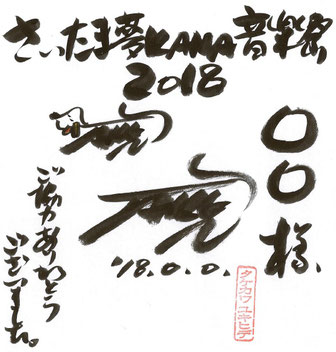 さいたま夢KAMA音楽祭
2018
〇〇様
'18.0.0.
タケカワユキヒデ
ご協力ありがとう
ございました。